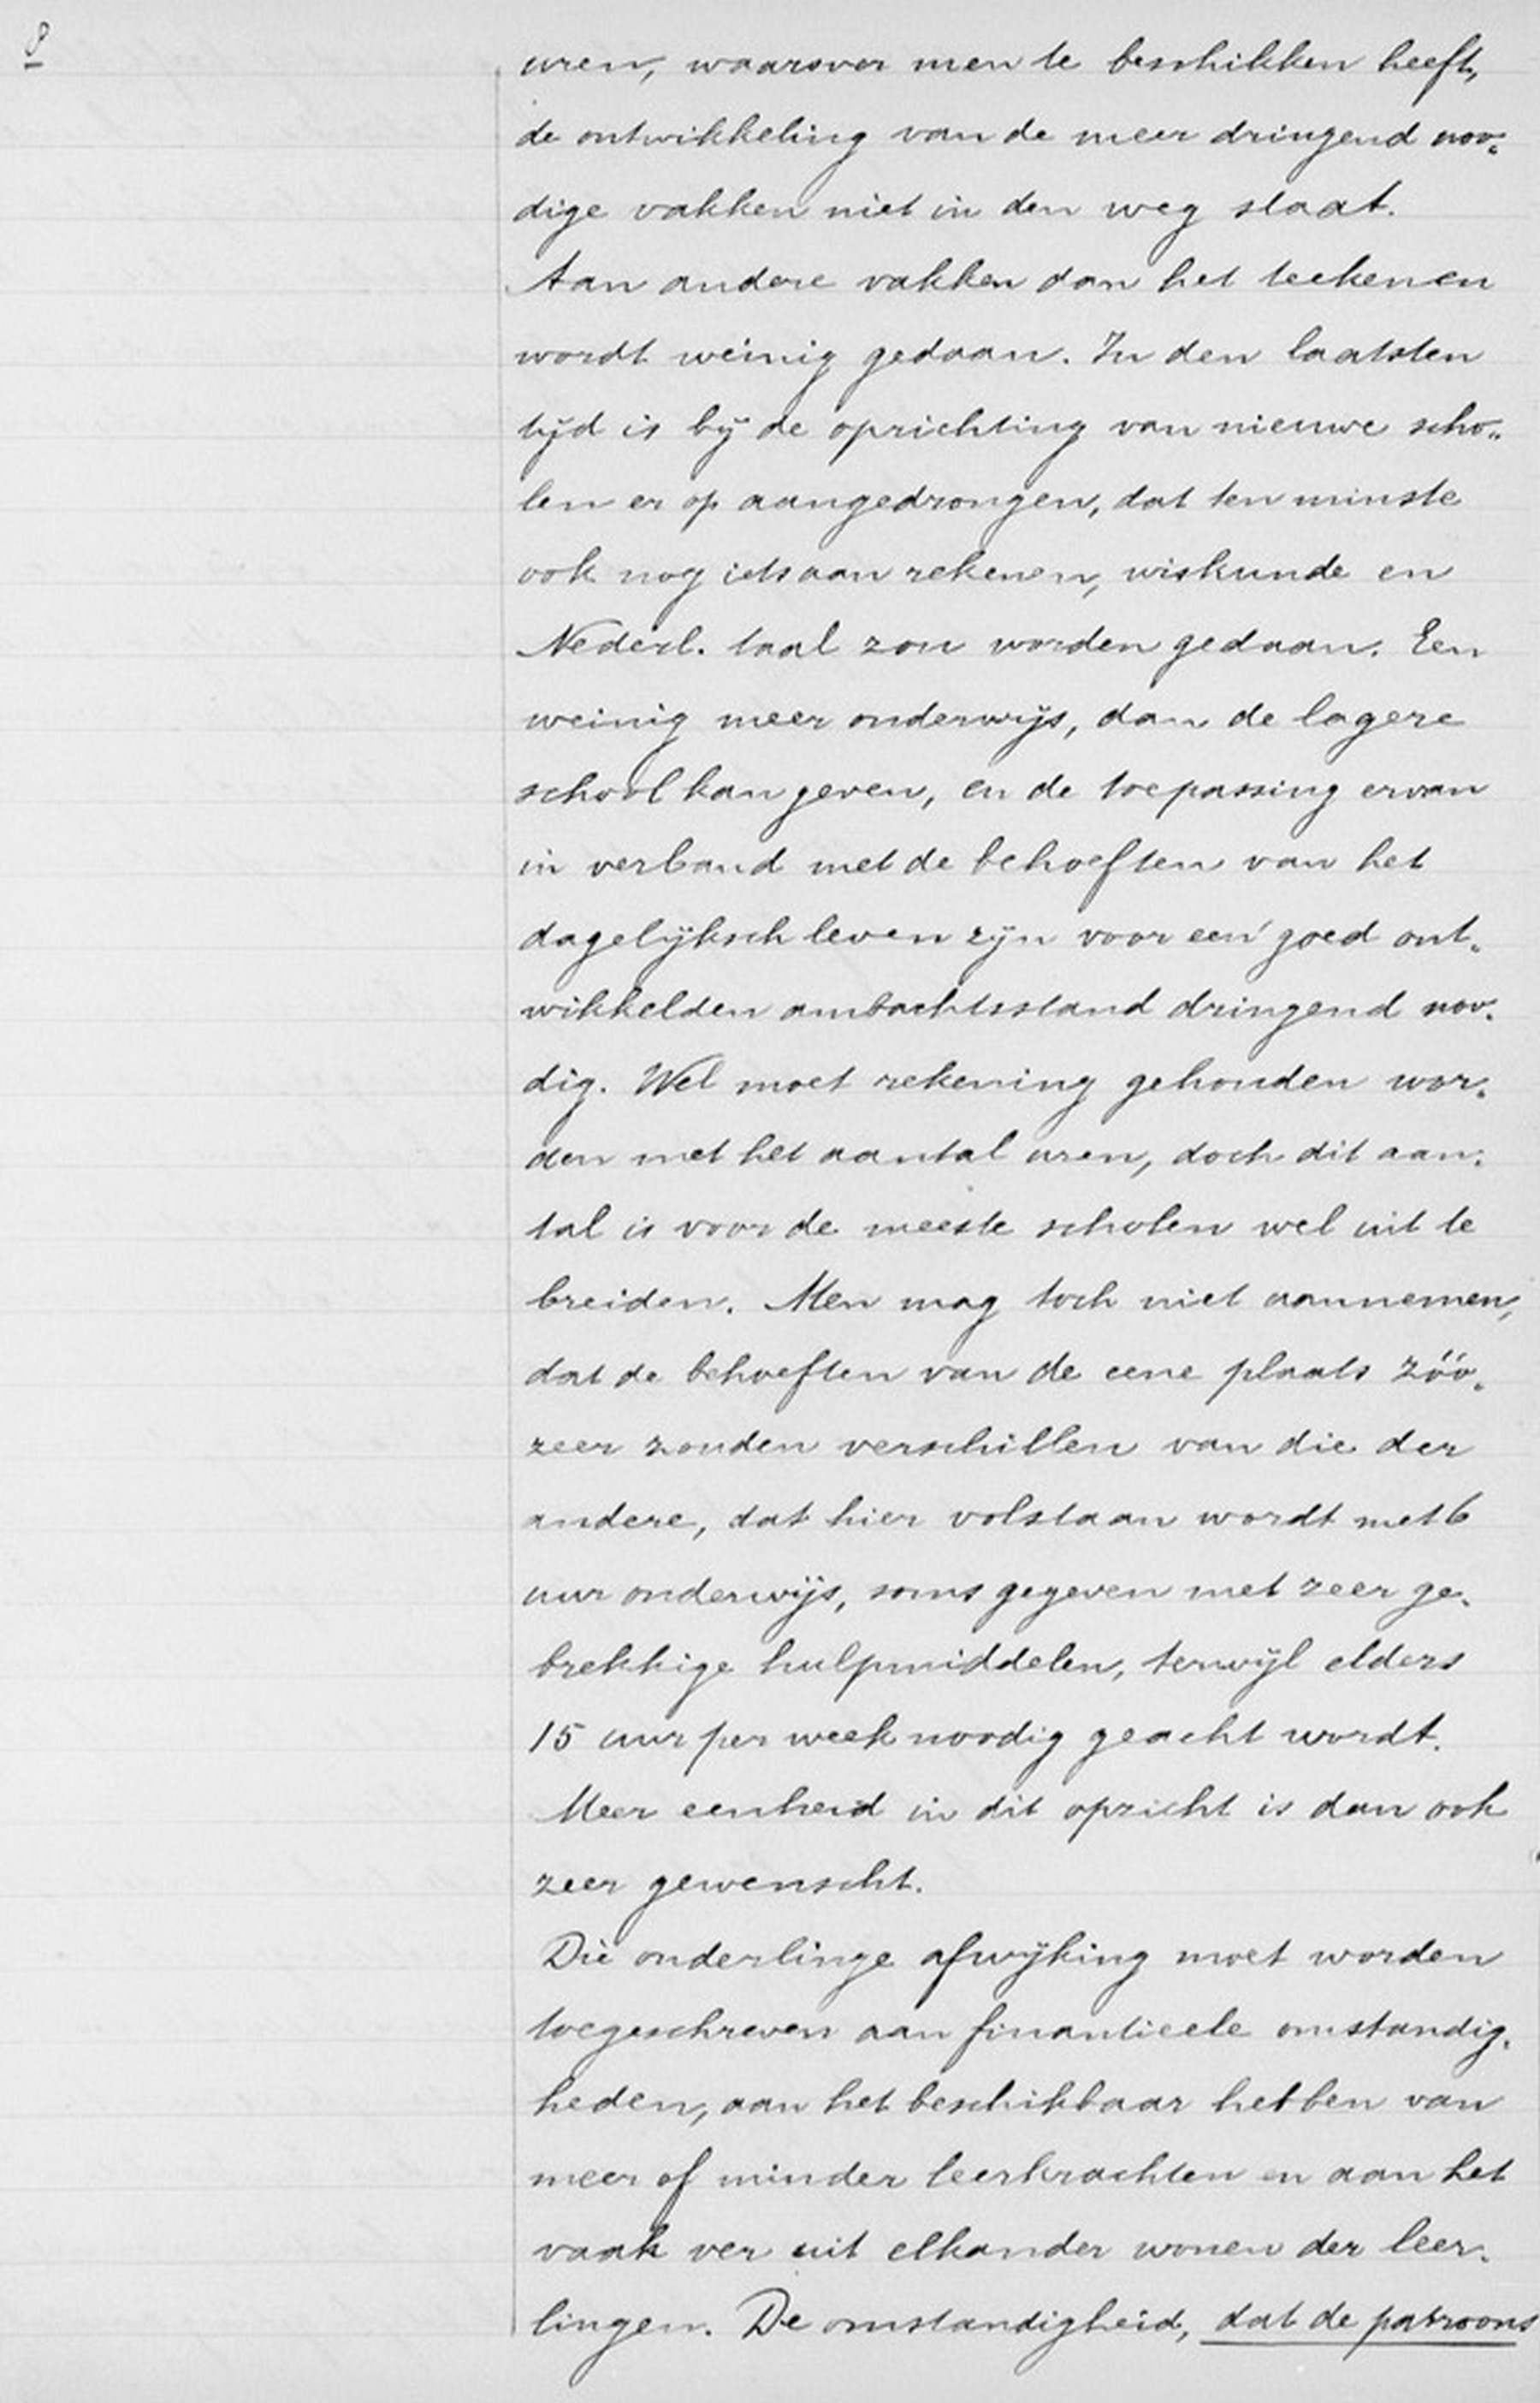 8
uren, waarover men te beschikken heeft,
de ontwikkeling van de meer dringend noo-
dige vakken niet in den weg staat.
Aan andere vakken dan het teekenen
wordt weinig gedaan. In den laatsten
tijd is bij de oprichting van nieuwe scho-
len er op aangedrongen, dat ten minste
ook nog iets aan rekenen, wiskunde en
Nederl. taal zou worden gedaan. Een
weinig meer onderwijs, dan de lagere
school kan geven, en de toepassing ervan
in verband met de behoeften van het
dagelijksch leven zijn voor een goed ont-
wikkelden ambachtsstand dringend noo-
dig. Wel moet rekening gehouden wor-
den met het aantal uren, doch dit aan-
tal is voor de meeste scholen wel uit te
breiden. Men mag toch niet aannemen,
dat de behoeften van de eene plaats zóó-
zeer zouden verschillen van die der
andere, dat hier volstaan wordt met 6
uur onderwijs, soms gegeven met zeer ge-
brekkige hulpmiddelen, terwijl elders
15 uur per week noodig geacht wordt.
Meer eenheid in dit opzicht is dan ook
zeer gewenscht.
Die onderlinge afwijking moet worden
toegeschreven aan finantieele omstandig-
heden, aan het beschikbaar hebben van
meer of minder leerkrachten en aan het
vaak ver uit elkander wonen der leer-
lingen. De omstandigheid, dat de patroons